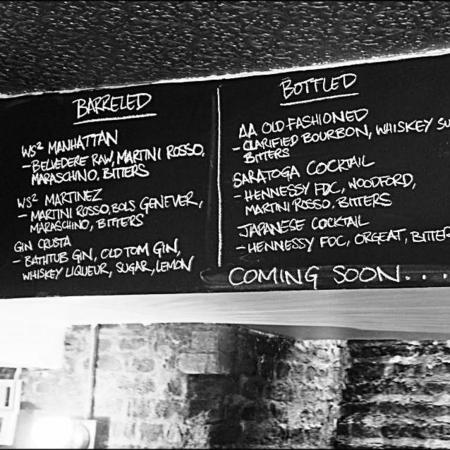 BARRELED
WS² MANHATTAN
- BELVEDERE RAW, MARTINI ROSSO,
MARASCHINO, BITTERS
WS² MARTINEZ
- MARTINI ROSSO, BOLS GENEVER,
MARASCHINO, BITTERS
GIN CRUSTA
- BATHTUB GIN, OLD TOM GIN,
WHISKEY LIQUEUR, SUGAR, LEMON
BOTTLED
AA OLD FASHIONED
- CLARIFIED BOURBON, WHISKEY SU
BITTERS
SARATOGA COCKTAIL
- HENNESSY FDC, WOODFORD,
MARTINI ROSSO, BITTERS
JAPANESE COCKTAIL
- HENNESSY FDC, ORGEAT, BITTER
COMING SOON....